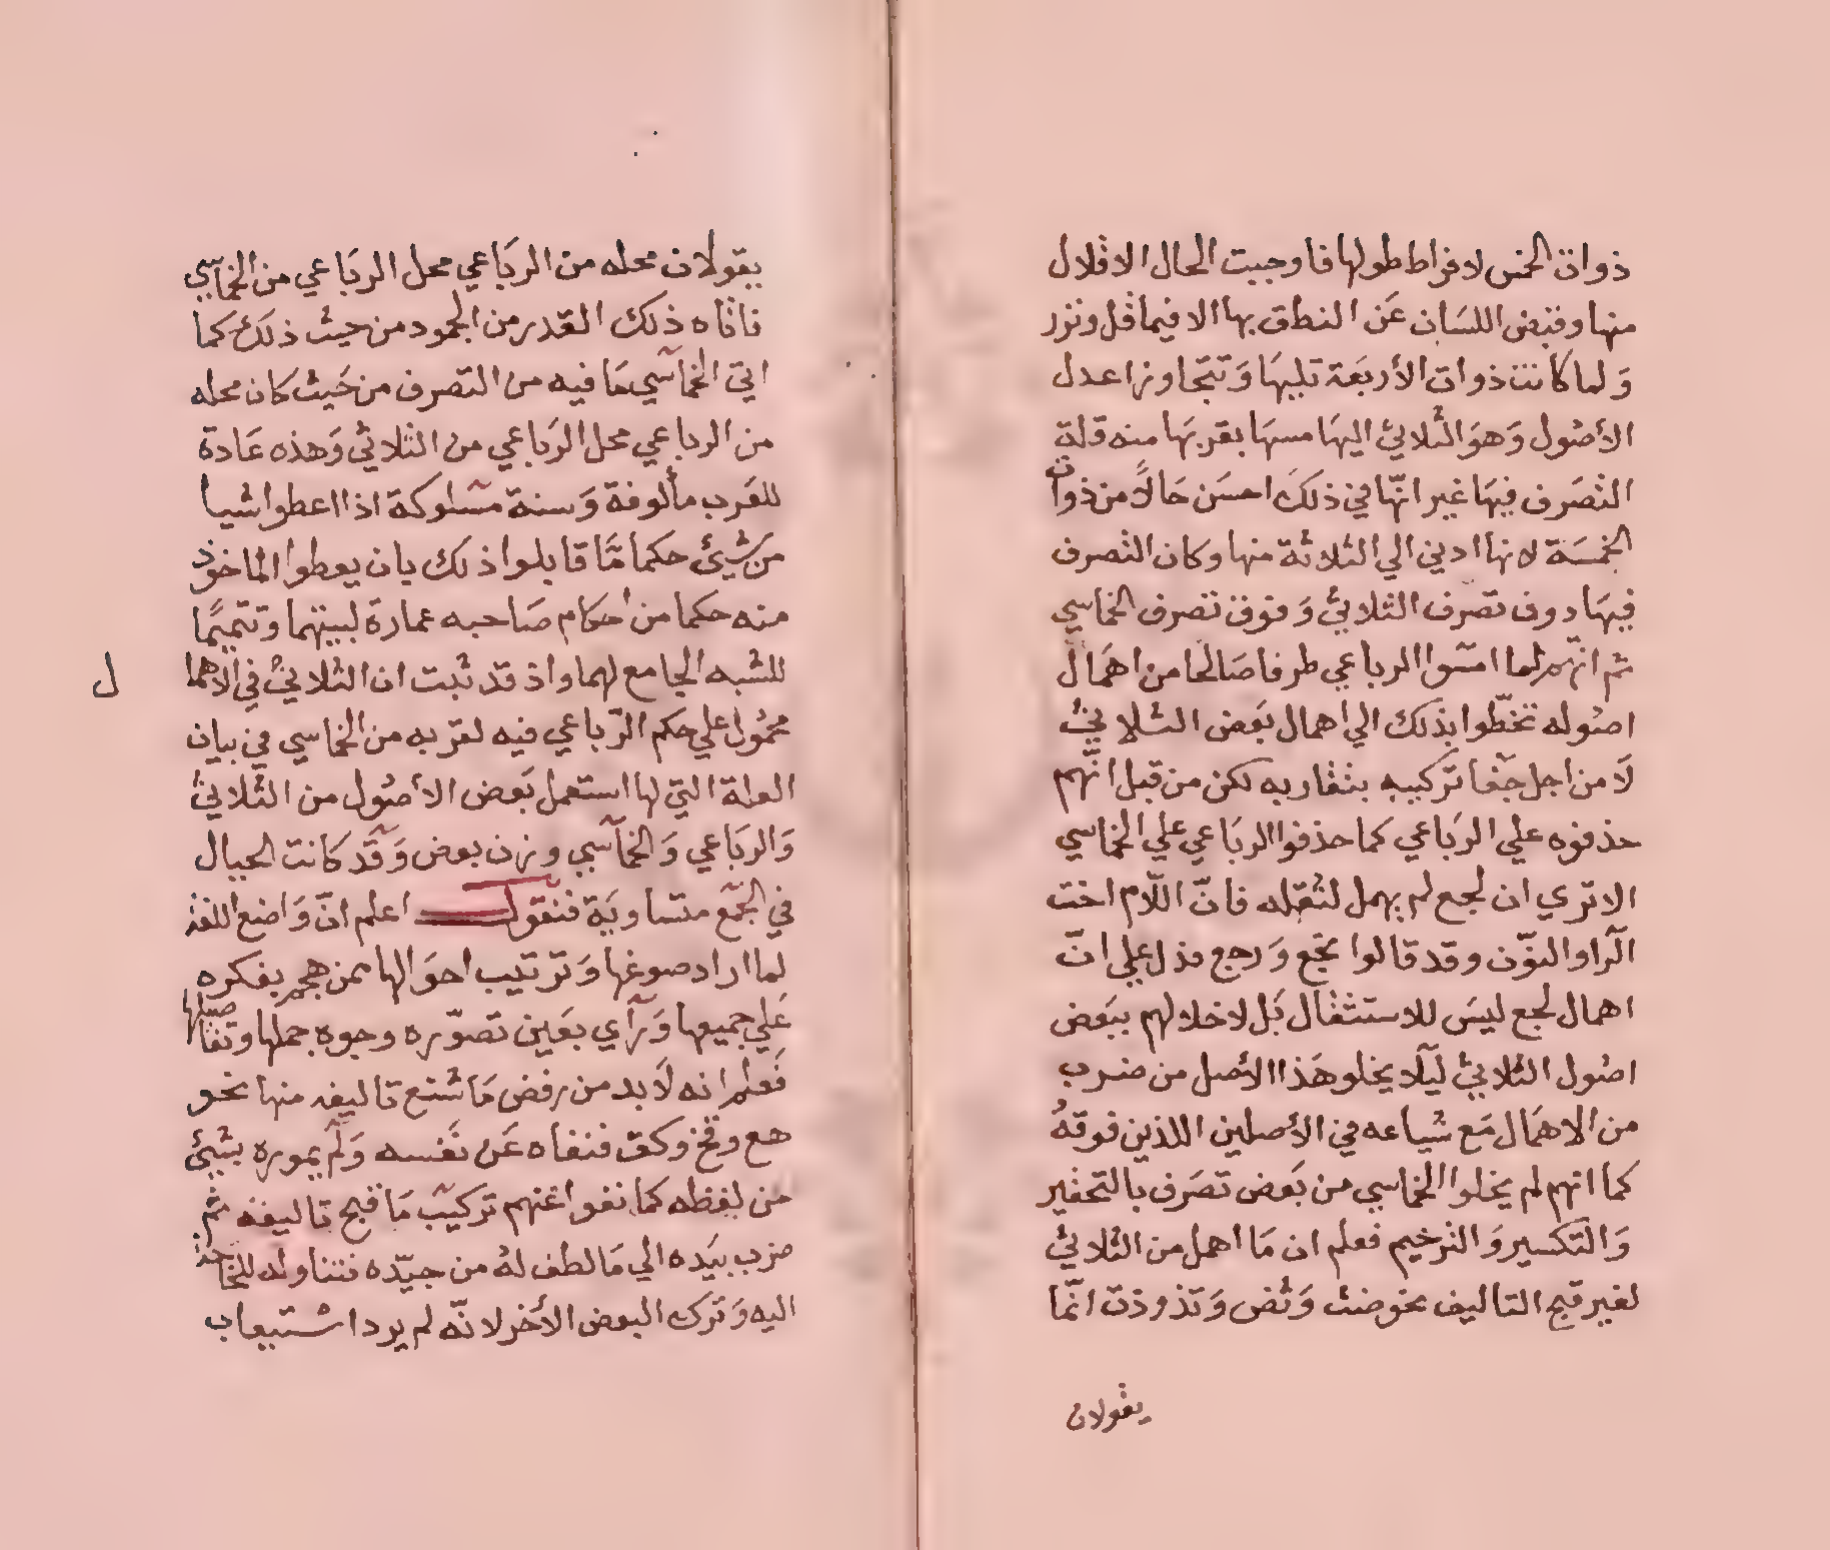 ذوات الخمس لافراط طولها فاوجبت الحال الاقلال
منها وقبض اللسَان عَن النطق بها الا فيما قل ونزر
وَلما كانت ذوات الأربعَة تليهَا وَتتجاوز اعدل
الأصُول وَهوَ الثلاثيّ اليهَا مسهَا بقربهَا منه قلة
التصَرف فيهَا غير انّها في ذلكَ احسَن حَالاً من ذوات
الخمسَة لانها ادني الي الثلاثة منها وكان التصرف
فيهَا دون تصرف الثلاثيّ وَفوق تصرف الخماسي
ثم انّهم لما امسّوا الرباعي طرفا صَالحا من اهمَال
اصُوله تخطّوا بذلك الي اهمال بَعض الثلاثيّ
لَا من اجل جَفا تركيبه بتقاربه لكن من قبل انّهم
حذفوه علي الربَاعي كما حذفوا الربَاعي علي الخماسي
الا تري ان لجع لم يهمل لثقله فانّ اللّام اخت
الرّا والنوّن وقد قالوا نجع وَرجع فدل علي انّ
اهمال لجع ليسَ للاستثقال بَل لاخلالهم ببَعض
اصُول الثلاثيّ ليلّا يخلو هَذا الأصل من ضرب
من الاهمَال مَع شياعه في الأصلين اللذين فوقهُ
كما انهم لم يخلوا الخماسي من بَعض تصَرف بالتحقير
وَالتكسير وَالترخيم فعلم ان مَا اهمل من الثلاثيّ
لغير قبح التاليف نحو ضث وَثض وَتذ وذت انّما
يقولان
يقولان محله من الربَاعي محل الربَاعي من الخماسي
فاتاه ذلك القدر من الجمود من حيث ذلكَ كما
اتي الخماسي مَا فيه من التصرف من حَيث كان محله
من الرباعي محل الربَاعي من الثلاثيّ وَهذه عَادة
للعَرب مألوفة وَسنة مسلوكة اذا اعطوا شيا
من شيئ حكما مّا قابلوا ذلك بان يعطوا الماخوذ
منه حكما من احكام صَاحبه عمارة لبينهما وتتميمًا
للشبه الجامع لهما واذ قد ثبت ان الثلاثيّ في الاهما
ل
محمُول علي حكم الرّباعي فيه لقربه من الخماسي في بيان
العلة التي لها استعمل بَعض الأصُول من الثلاثيّ
وَالربَاعي وَالخماسي وزن بعض وَقد كانت الحيال
في الجمّع متساويَة فنقول اعلم انّ وَاضع اللغة
لما اراد صوغها وَترتيب احوَالها من هجم بفكره
عَلي جميعها وَرأي بعَين تصوّره وجوه جملها وتفاصيلها
فَعلم انه لَا بد من رفض مَا شنع تاليفه منها نحو
هع وقخ وكق فنفاه عَن نفسه وَلم يمرره بشيئ
من لفظه كما نفوا عَنهم تركيب مَا قبح تاليفه ثم
ضرب بيَده الي مَا لطف لهُ من جيّده فتناوله للحاجة
اليه وَترك البعض الأخر لانّه لم يرد اشتيعاب